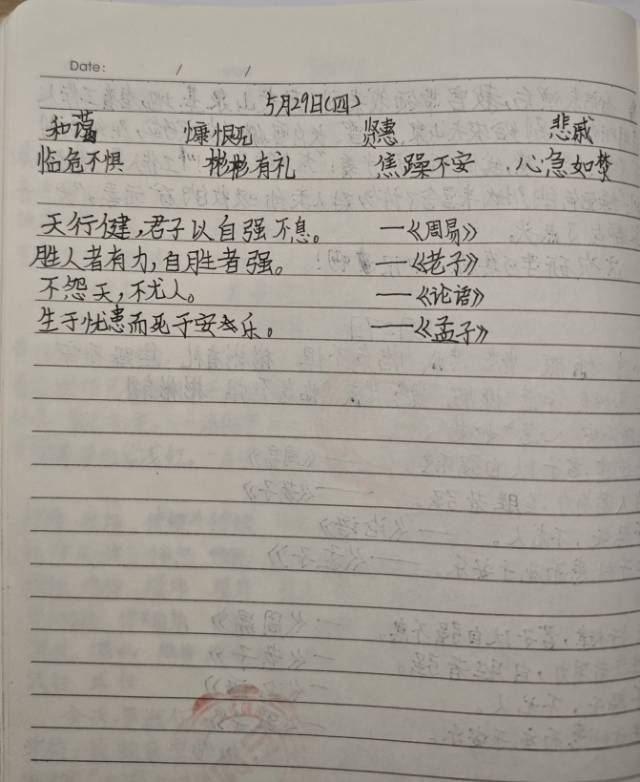 Date: / /
5月29日(四)
和蔼 慷慨 贤惠 悲戚
临危不惧 彬彬有礼 焦躁不安 心急如焚
天行健,君子以自强不息。 —《周易》
胜人者有力,自胜者强。 ——《老子》
不怨天,不尤人。 ——《论语》
生于忧患而死于安乐。 ——《孟子》